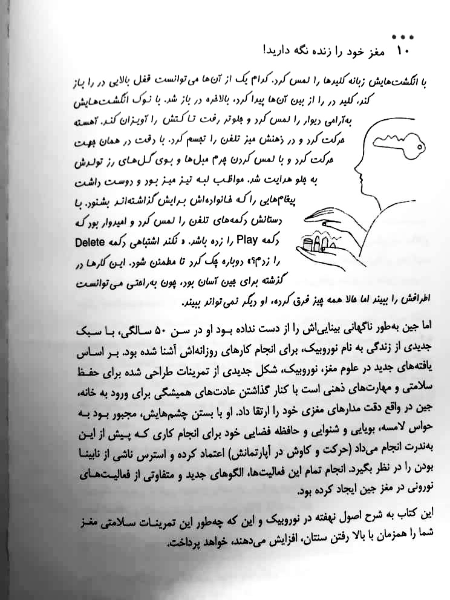 ۱۰ مغز خود را زنده نگه دارید!
با انگشت‌هایش زبانه کلیدها را لمس کرد. کدام یک از آن‌ها می‌توانست قفل بالایی در را باز
کند، کلید در را از بین آن‌ها پیدا کرد، بالاخره در باز شد. با نوک انگشت‌هایش
به‌آرامی دیوار را لمس کرد و جلوتر رفت تا کتش را آویزان کند. آهسته
حرکت کرد و در ذهنش میز تلفن را تجسم کرد. با دقت در همان جهت
حرکت کرد و با لمس کردن چرم مبل‌ها و بوی گل‌های رز تولدش
به جلو هدایت شد. مواظب لبه تیز میز بود و دوست داشت
پیغام‌هایی را که خانواده‌اش برایش گذاشته‌اند بشنود. با
دستانش دکمه‌های تلفن را لمس کرد و امیدوار بود که
دکمه Play را زده باشد. « نکند اشتباهی دکمه Delete
را زدم؟» دوباره چک کرد تا مطمئن شود. این کارها در
گذشته برای جین آسان بود، چون به‌راحتی می‌توانست
اطرافش را ببیند اما حالا همه چیز فرق کرده، او دیگر نمی‌تواند ببیند.
اما جین به‌طور ناگهانی بینایی‌اش را از دست نداده بود او در سن ۵۰ سالگی، با سبک
جدیدی از زندگی به نام نوروبیک، برای انجام کارهای روزانه‌اش آشنا شده بود. بر اساس
یافته‌های جدید در علوم مغز، نوروبیک، شکل جدیدی از تمرینات طراحی شده برای حفظ
سلامتی و مهارت‌های ذهنی است با کنار گذاشتن عادت‌های همیشگی برای ورود به خانه،
جین در واقع دقت مدارهای مغزی خود را ارتقا داد. او با بستن چشم‌هایش، مجبور بود به
حواس لامسه، بویایی و شنوایی و حافظه فضایی خود برای انجام کاری که پیش از این
به‌ندرت انجام می‌داد (حرکت و کاوش در آپارتمانش) اعتماد کرده و استرس ناشی از نابینا
بودن را در نظر بگیرد. انجام تمام این فعالیت‌ها، الگوهای جدید و متفاوتی از فعالیت‌های
نورونی در مغز جین ایجاد کرده بود.
این کتاب به شرح اصول نهفته در نوروبیک و این که چه‌طور این تمرینات سلامتی مغز
شما را همزمان با بالا رفتن سنتان، افزایش می‌دهند، خواهد پرداخت.